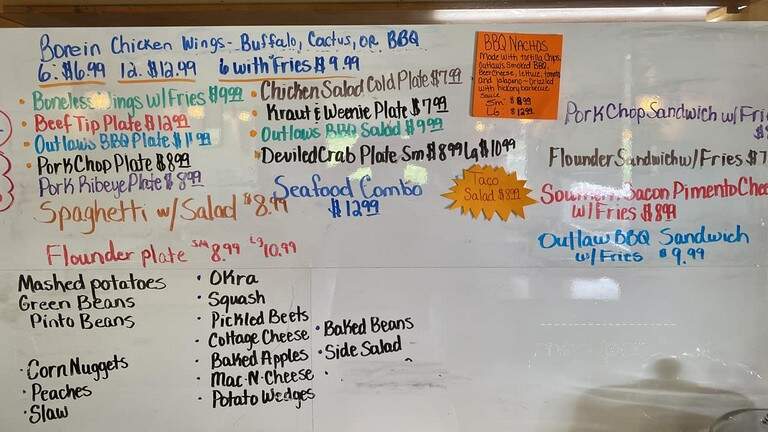 Borein Chicken Wings- Buffalo, Cactus, or BBQ
6: $6.99 12. $12.99 6 with Fries $9.99
• Boneless Wings w/Fries $9.99
• Beef Tip Plate $12.99
• Outlaws BBQ Plate $11.99
• Pork Chop Plate $8.99
Pork Ribeye Plate $8.99
Spaghetti w/Salad $8.99
Flounder plate sm 8.99 Lg 10.99
• Chicken Salad Cold Plate $7.99
• Kraut & Weenie Plate $7.99
• Outlaws BBQ Salad $9.99
• Deviled Crab Plate Sm $8.99 Lg $10.99
Seafood Combo
$12.99
BBQ Nachos
Made with Tortilla Chips,
Outlaws Smoked BBQ,
Beer Cheese, lettuce, tomato
and jalapino - Drizzled
with hickory barbecue
Sauce
Sm $8.99
LG $12.99
Taco
Salad $8.99
Pork Chop Sandwich w/Fri
Flounder Sandwich w/Fries $7
Southern Bacon Pimento Chee
w/Fries $8.99
Outlaw BBQ Sandwich
w/Fries $9.99
Mashed potatoes
Green Beans
Pinto Beans
• Corn Nuggets
• Peaches
• Slaw
• Okra
• Squash
• Pickled Beets
• Cottage Cheese
• Baked Apples
• Mac-N-Cheese
• Potato Wedges
• Baked Beans
• Side Salad
•